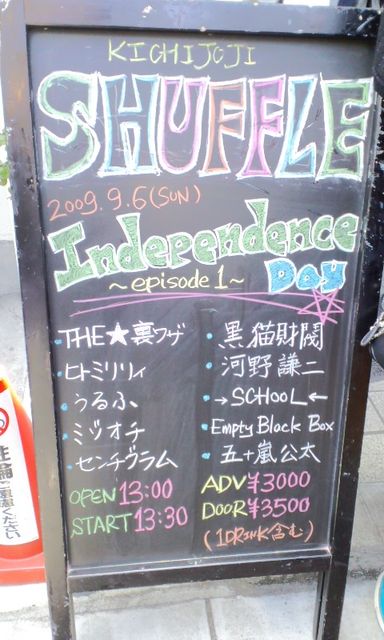 KICHIJOJI
SHUFFLE
2009.9.6(SUN)
Independence
~episode 1~ Day
・THE★裏ワザ
・ヒトミリリィ
・うるふ
・ミゾオチ
・センチグラム
・黒猫財閥
・河野謙二
・→SCHOOL←
・Empty Black Box
・五十嵐公太
OPEN 13:00
START 13:30
ADV ¥3000
DOOR ¥3500
(1DRINK含む)
駐輪
ください